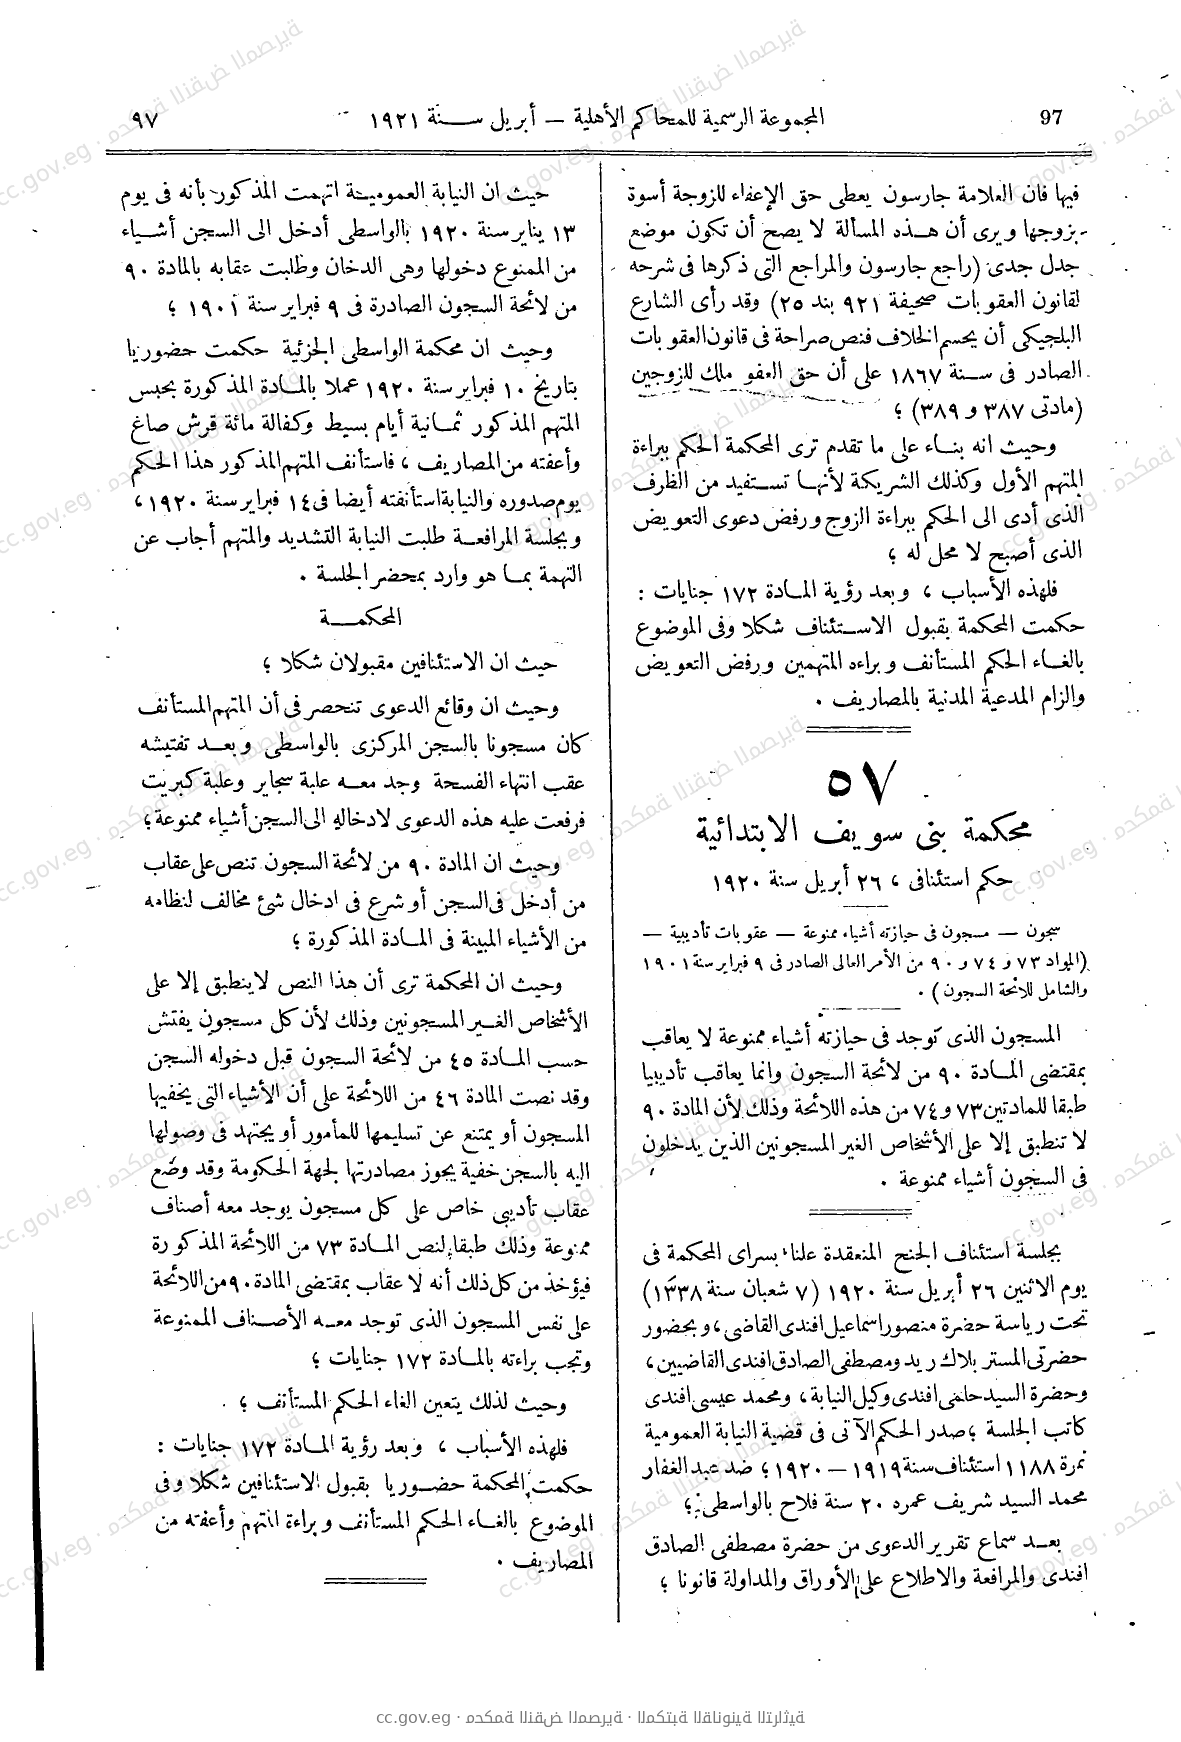 97
المجموعة الرسمية للمحاكم الأهلية — أبريل سنة ١٩٢١
٩٧
فيها فان العلامة جارسون يعطى حق الإعفاء للزوجة أسوة
بزوجها ويرى أن هذه المسألة لا يصح أن تكون موضع
جدل جدى (راجع جارسون والمراجع التى ذكرها فى شرحه
لقانون العقوبات صحيفة ٩٢١ بند ٢٥) وقد رأى الشارع
البلجيكى أن يحسم الخلاف فنص صراحة فى قانون العقوبات
الصادر فى سنة ١٨٦٧ على أن حق العفو ملك للزوجين
(مادتى ٣٨٧ و ٣٨٩) ؛
وحيث انه بناء على ما تقدم ترى المحكمة الحكم ببراءة
المتهم الأول وكذلك الشريكة لأنها تستفيد من الظرف
الذى أدى الى الحكم ببراءة الزوج ورفض دعوى التعويض
الذى أصبح لا محل له ؛
فلهذه الأسباب ، وبعد رؤية المادة ١٧٢ جنايات :
حكمت المحكمة بقبول الاستئناف شكلا وفى الموضوع
بالغاء الحكم المستأنف وبراءه المتهمين ورفض التعويض
والزام المدعية المدنية بالمصاريف .
٥٧
محكمة بنى سويف الابتدائية
حكم استئنافى ، ٢٦ أبريل سنة ١٩٢٠
سجون — مسجون فى حيازته أشياء ممنوعة — عقوبات تأديبية —
(المواد ٧٣ و ٧٤ و ٩٠ من الأمر العالى الصادر فى ٩ فبراير سنة ١٩٠١
والشامل للائحة السجون) .
المسجون الذى توجد فى حيازته أشياء ممنوعة لا يعاقب
بمقتضى المادة ٩٠ من لائحة السجون وانما يعاقب تأديبيا
طبقا للمادتين ٧٣ و ٧٤ من هذه اللائحة وذلك لأن المادة ٩٠
لا تنطبق إلا على الأشخاص الغير المسجونين الذين يدخلون
فى السجون أشياء ممنوعة .
بجلسة استئناف الجنح المنعقدة علنا بسراى المحكمة فى
يوم الاثنين ٢٦ أبريل سنة ١٩٢٠ (٧ شعبان سنة ١٣٣٨)
تحت رياسة حضرة منصور اسماعيل افندى القاضى ، وبحضور
حضرتى المستر بلاك ريد ومصطفى الصادق افندى القاضيين ،
وحضرة السيد حلمى افندى وكيل النيابة ، ومحمد عيسى افندى
كاتب الجلسة ؛ صدر الحكم الآتى فى قضية النيابة العمومية
نمرة ١١٨٨ استئناف سنة ١٩١٩ — ١٩٢٠ ؛ ضد عبد الغفار
محمد السيد شريف عمره ٢٠ سنة فلاح بالواسطى ؛
بعد سماع تقرير الدعوى من حضرة مصطفى الصادق
افندى والمرافعة والاطلاع على الأوراق والمداولة قانونا ؛
حيث ان النيابة العمومية اتهمت المذكور بأنه فى يوم
١٣ يناير سنة ١٩٢٠ بالواسطى أدخل الى السجن أشياء
من الممنوع دخولها وهى الدخان وطلبت عقابه بالمادة ٩٠
من لائحة السجون الصادرة فى ٩ فبراير سنة ١٩٠١ ؛
وحيث ان محكمة الواسطى الجزئية حكمت حضوريا
بتاريخ ١٠ فبراير سنة ١٩٢٠ عملا بالمادة المذكورة بحبس
المتهم المذكور ثمانية أيام بسيط وكفالة مائة قرش صاغ
وأعفته من المصاريف ، فاستأنف المتهم المذكور هذا الحكم
يوم صدوره والنيابة استأنفته أيضا فى ١٤ فبراير سنة ١٩٢٠ ،
وبجلسة المرافعة طلبت النيابة التشديد والمتهم أجاب عن
التهمة بما هو وارد بمحضر الجلسة .
المحكمة
حيث ان الاستئنافين مقبولان شكلا ؛
وحيث ان وقائع الدعوى تنحصر فى أن المتهم المستأنف
كان مسجونا بالسجن المركزى بالواسطى وبعد تفتيشه
عقب انتهاء الفسحة وجد معه علبة سجاير وعلبة كبريت
فرفعت عليه هذه الدعوى لادخاله الى السجن أشياء ممنوعة ؛
وحيث ان المادة ٩٠ من لائحة السجون تنص على عقاب
من أدخل فى السجن أو شرع فى ادخال شئ مخالف لنظامه
من الأشياء المبينة فى المادة المذكورة ؛
وحيث ان المحكمة ترى أن هذا النص لاينطبق إلا على
الأشخاص الغير المسجونين وذلك لأن كل مسجون يفتش
حسب المادة ٤٥ من لائحة السجون قبل دخوله السجن
وقد نصت المادة ٤٦ من اللائحة على أن الأشياء التى يخفيها
المسجون أو يمتنع عن تسليمها للمأمور أو يجتهد فى وصولها
اليه بالسجن خفية يجوز مصادرتها لجهة الحكومة وقد وضع
عقاب تأديبى خاص على كل مسجون يوجد معه أصناف
ممنوعة وذلك طبقا لنص المادة ٧٣ من اللائحة المذكورة
فيؤخذ من كل ذلك أنه لا عقاب بمقتضى المادة ٩٠ من اللائحة
على نفس المسجون الذى توجد معه الأصناف الممنوعة
وتجب براءته بالمادة ١٧٢ جنايات ؛
وحيث لذلك يتعين الغاء الحكم المستأنف ؛
فلهذه الأسباب ، وبعد رؤية المادة ١٧٢ جنايات :
حكمت المحكمة حضوريا بقبول الاستئنافين شكلا وفى
الموضوع بالغاء الحكم المستأنف وبراءة المتهم وأعفته من
المصاريف .
cc.gov.eg · محكمة النقض المصرية · المكتبة القانونية التراثية